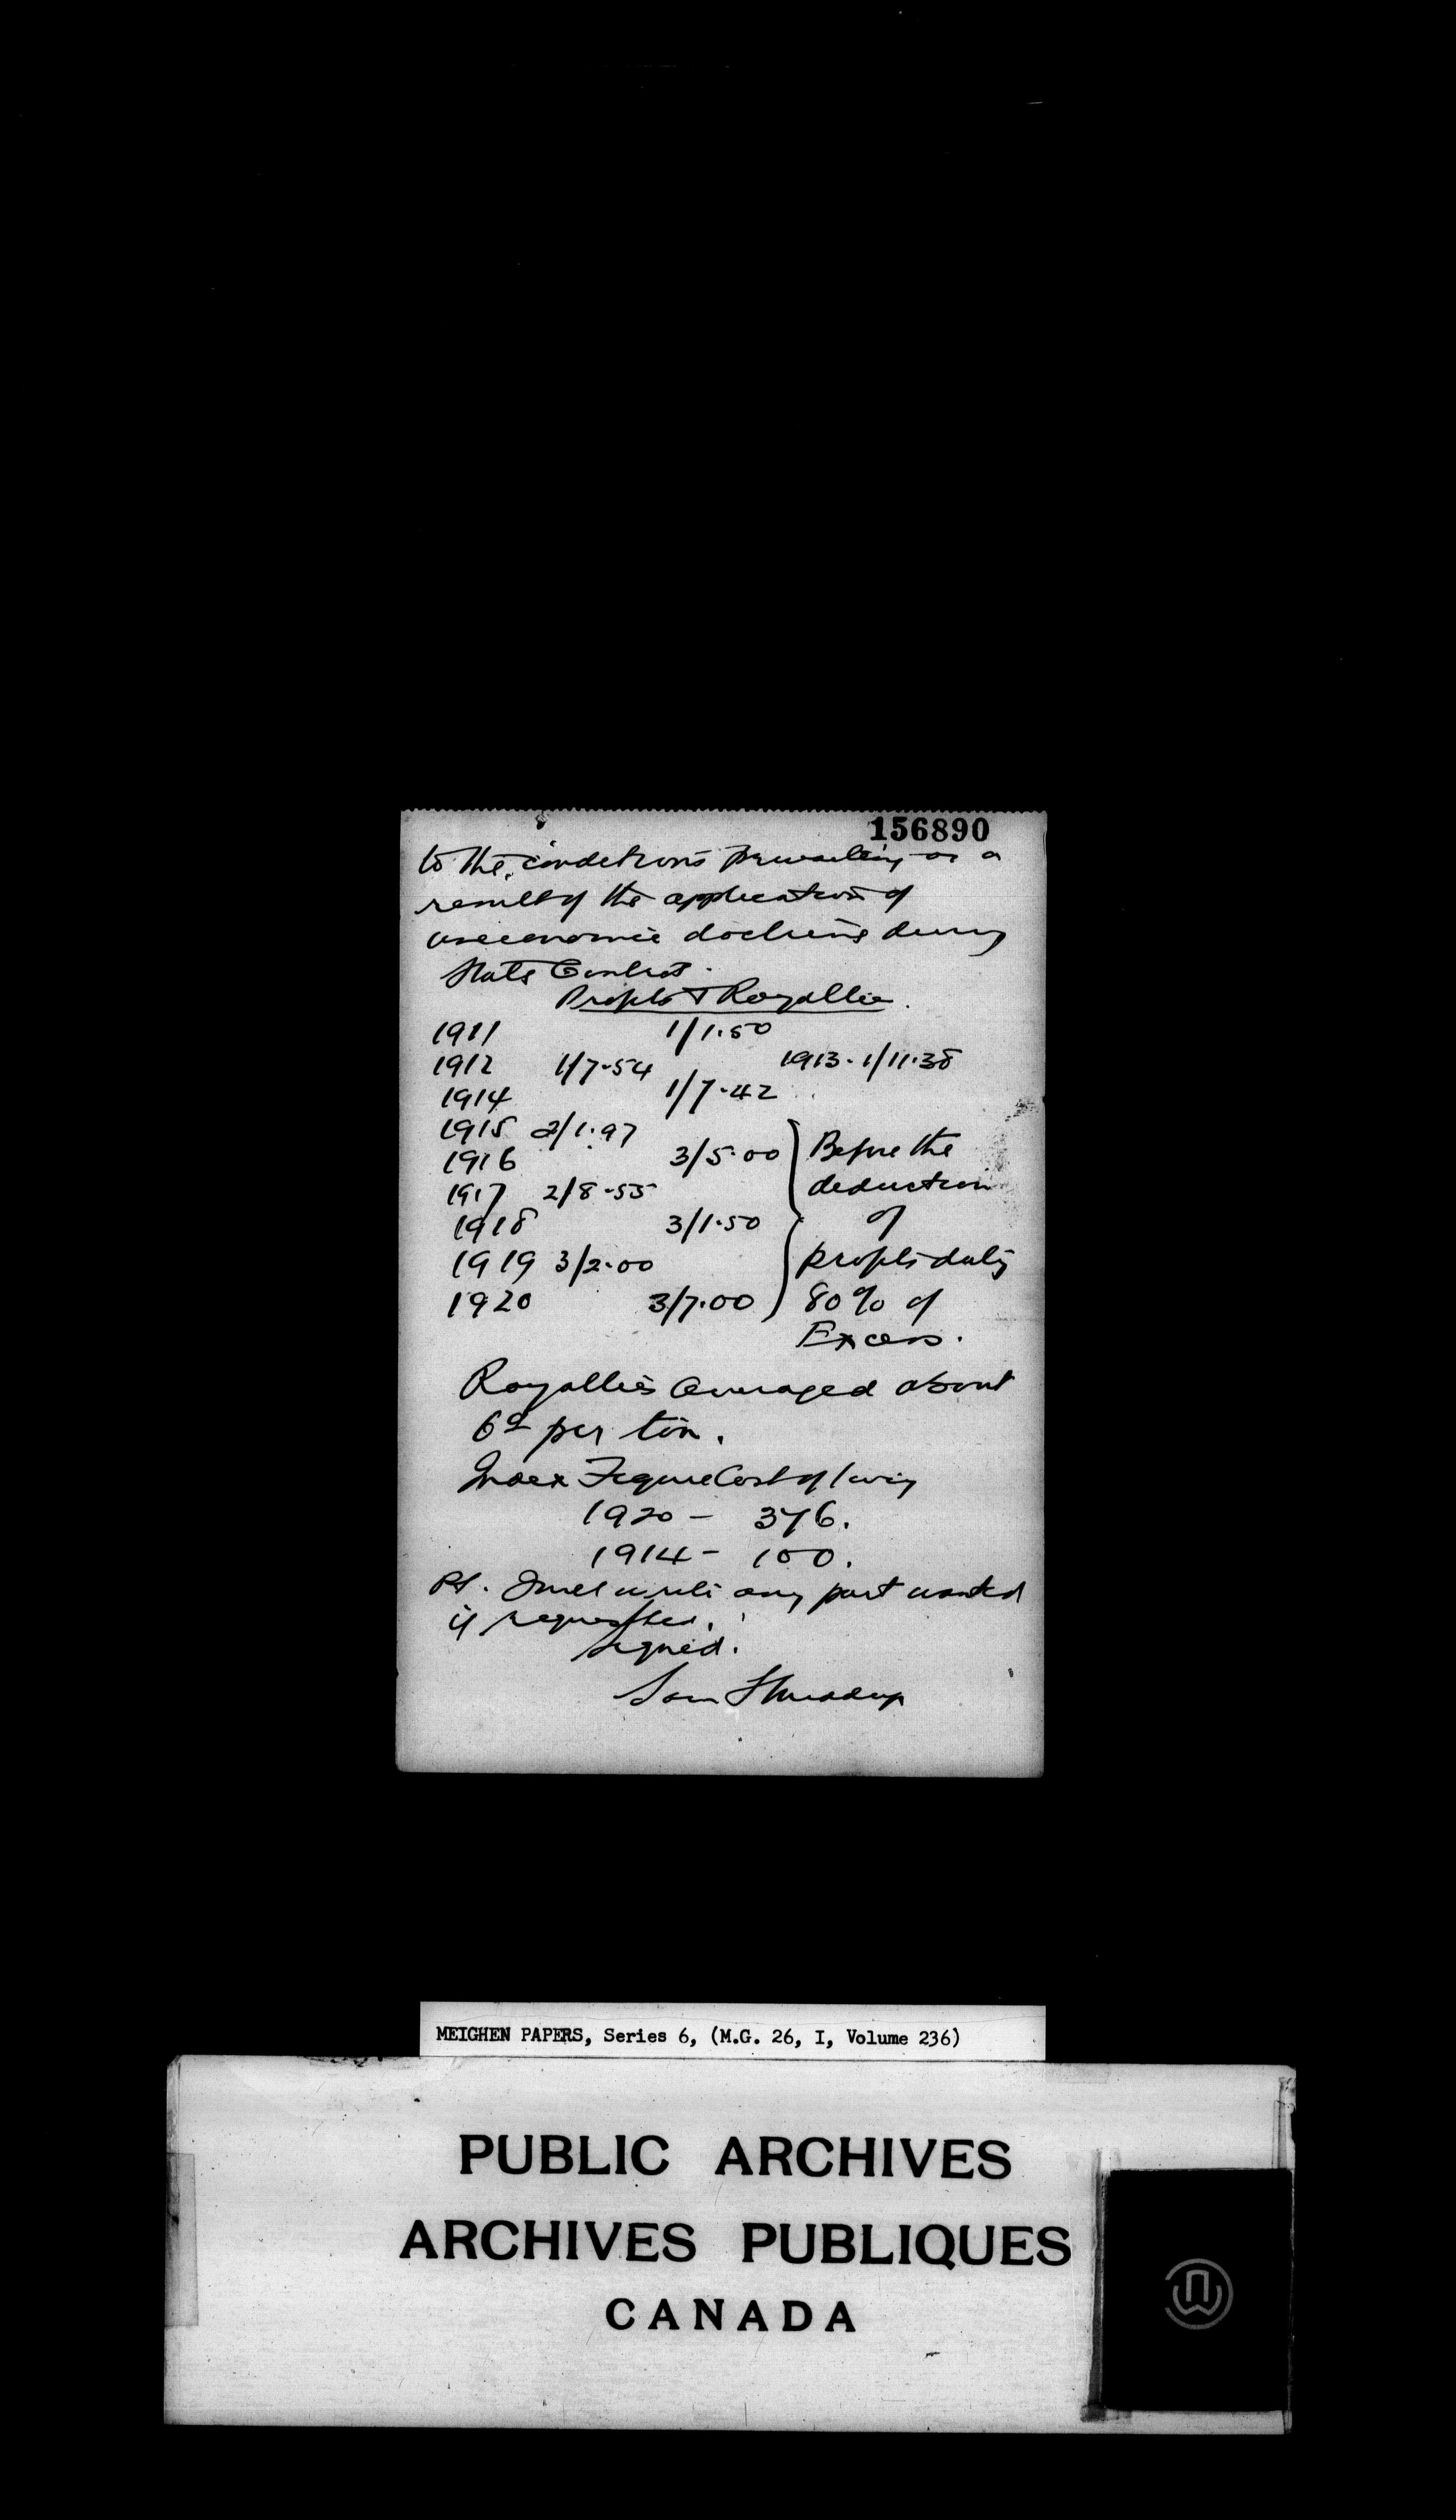 156890
to the conditions prevailing as a
result of the application of
uneconomic doctrine during
State Control.
Profits & Royalties.
1911 1/1.50
1912 1/7.54 1913. 1/11.38
1914 1/7.42
1915 2/1.97
1916 3/5.00 Before the
1917 2/8.55 deduction
1918 3/1.50 of
1919 3/2.00 profits duty
1920 3/7.00 80% of
Excess.
Royalties averaged about
6d per ton.
Index Figure Cost of living
1920 - 376.
1914 - 100.
PS. any part wanted
if
Signed.
Sam
MEIGHEN PAPERS, Series 6, (M.G. 26, I, Volume 236)
PUBLIC ARCHIVES
ARCHIVES PUBLIQUES
CANADA